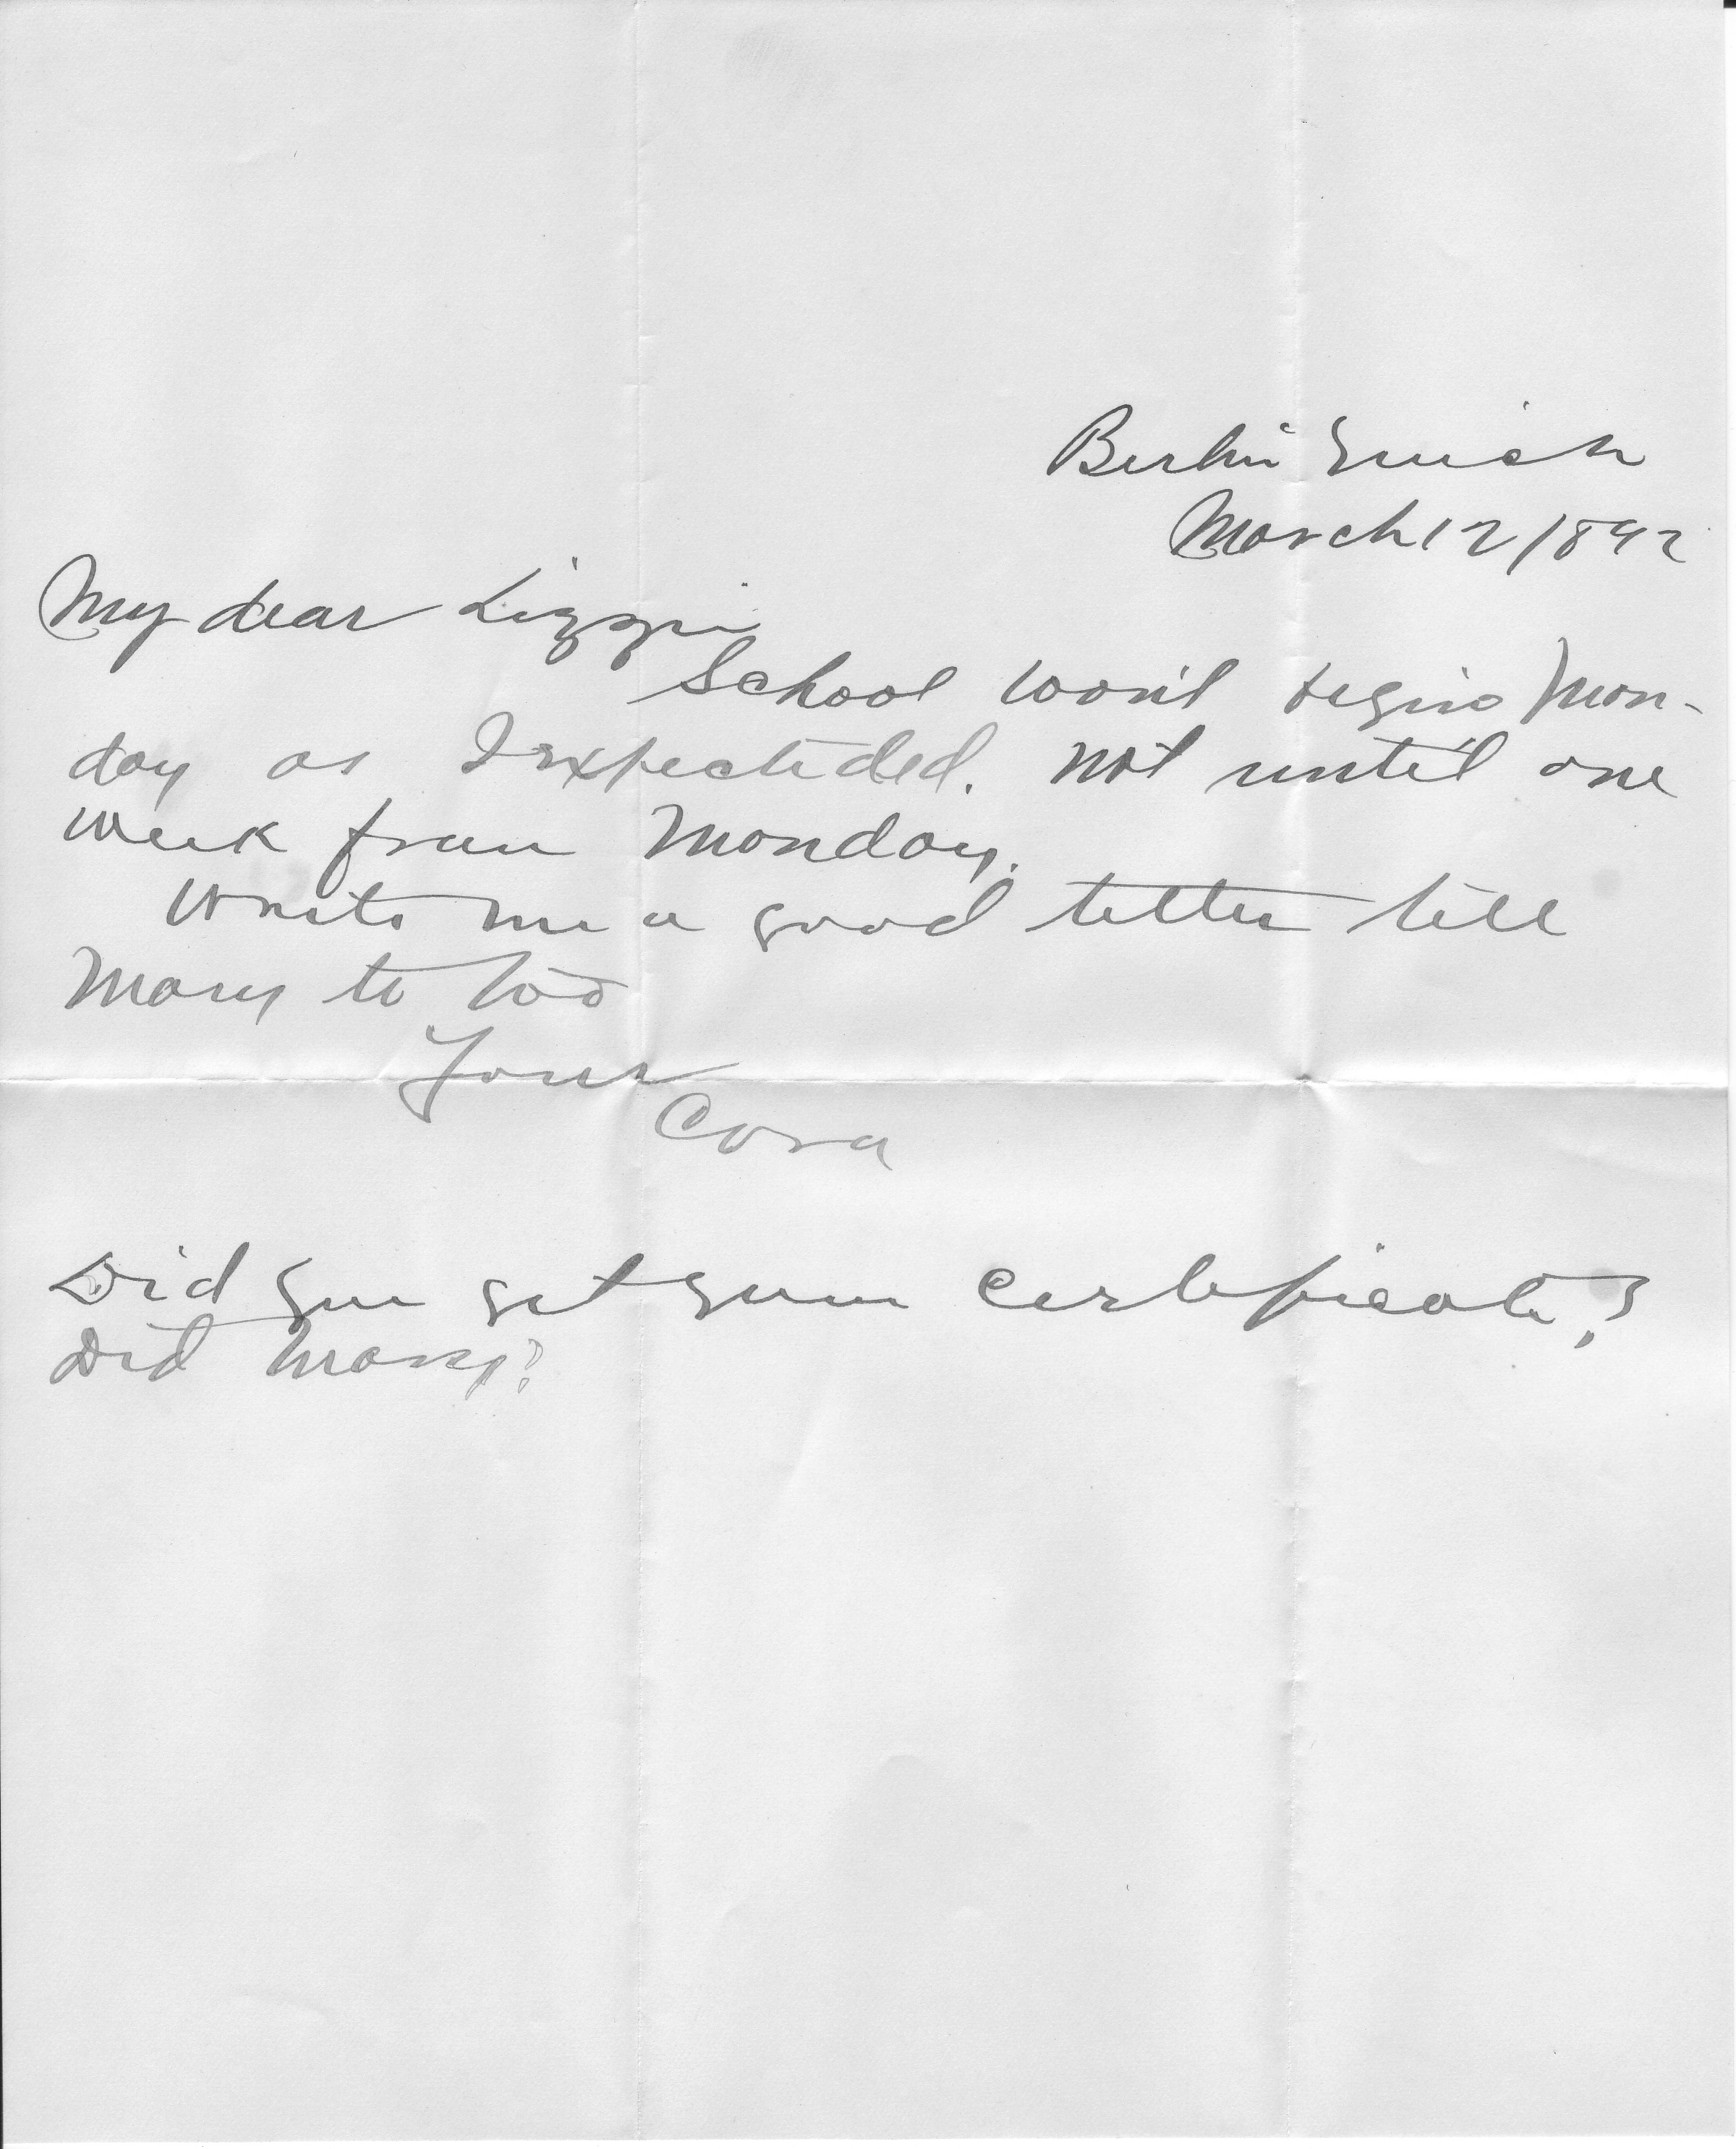 Berlin
March 12 1892
My dear Lizzie
School won't begin Mon-
day as I expecteded. Not until one
week from Monday.
Write me a good letter tell
Mary to too
Your
Cora
Did you get your certificate?
Did Mary?